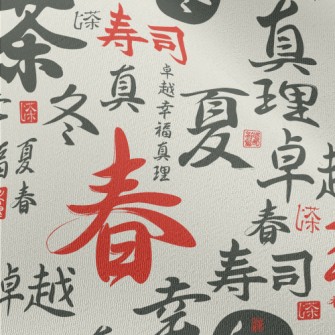 茶
茶
寿司
真理
真
卓越幸福真理
冬
夏
卓越
夏春
春
春
茶
寿司
卓越
幸